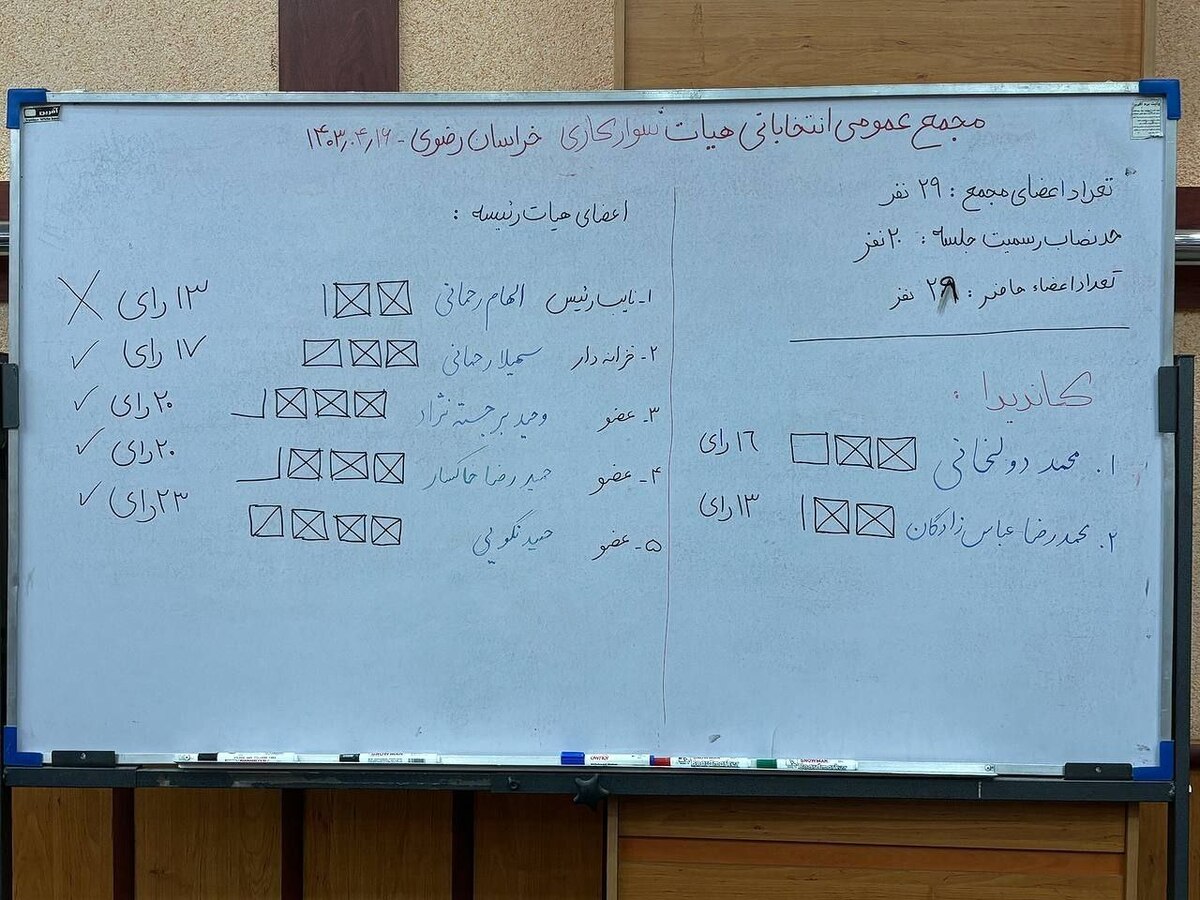 مجمع عمومی انتخاباتی هیات سوارکاری خراسان رضوی - ۱۴۰۳٫۰۴٫۱۶
تعداد اعضای مجمع : ۲۹ نفر
حد نصاب رسمیت جلسه : ۲۰ نفر
تعداد اعضاء حاضر : ۲۹ نفر
کاندیدا :
۱. محمد دولخانی ۱۶ رای
۲. محمدرضا عباس زادگان ۱۳ رای
اعضای هیات رئیسه :
۱- نایب رئیس الهام رحمانی ۱۳ رای
۲- خزانه دار سهیلا رحمانی ۱۷ رای
۳- عضو وحید برجسته نژاد ۲۰ رای
۴- عضو حمیدرضا خاکسار ۲۰ رای
۵- عضو حمید نکویی ۲۳ رای
SNOWMAN
SNOWMAN